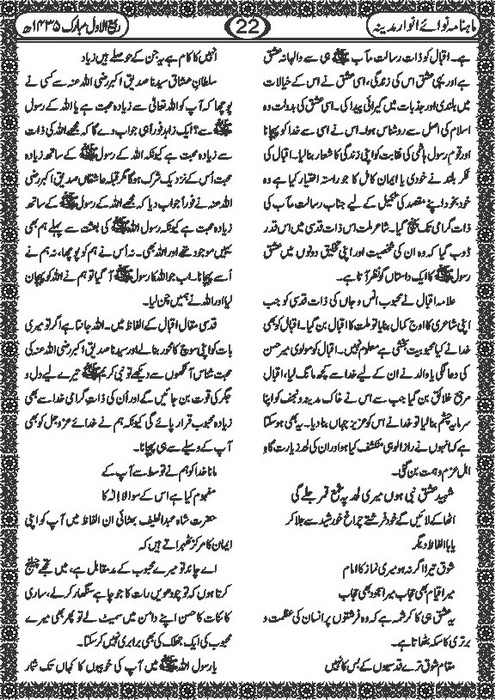 ماہنامہ نوائے انوار مدینہ
22
ربیع الاول مبارک ۱۴۳۵ھ
ہے۔ اقبال کو ذات رسالت مآب ﷺ ہی سے والہانہ عشق
ہے اور یہی عشق اس کی زندگی ہے۔ اسی عشق نے اس کے خیالات
میں بلندی اور جذبات میں گہرائی پیدا کی۔ اسی عشق کی بدولت وہ
اسلام کی اصل سے روشناس ہوا۔ اس نے اسی سے خدا کو پہچانا
اور قوم رسول ہاشمی کی نقابت کو اپنی زندگی کا شعار بنا لیا۔ اقبال کی
فکر بلند نے خودی یا ایمان کامل کا جو راستہ اختیار کیا ہے وہ
خود بخود اپنے مقصد کی تکمیل کے لیے جناب رسالت مآب کی
ذات گرامی تک پہنچ گیا۔ شاعر ملت اس ذات قدسی میں اس قدر
ڈوب گیا کہ وہ ان کی شخصیت اور اپنی تخلیق دونوں میں عشق
رسول ﷺ کا ایک داستاں گو نظر آتا ہے۔
علامہ اقبال نے محبوب انس و جاں کی ذات قدسی کو جب
اپنی شاعری کا اوج کمال بنایا تو ملت کا اقبال بن گیا۔ اقبال کو بھی
خدا نے کیا محبوبیت بخشی ہے معلوم نہیں۔ اقبال کو مولوی میر حسن
کی دعا لگی یا والد نے ان کے لیے خدا سے کچھ مانگ لیا، اقبال
مرجع خلائق بن گیا جب سے اس نے خاک مدینہ و نجف کو اپنا
سرمایہ چشم بنا لیا تو خدا نے اس کو عزیز جہاں بنا دیا۔ یہ بھی ہو سکتا
ہے کہ انہوں نے راز الوہی منکشف کیا ہو اور ان کی لحد زیارت گاہ
اہل عزم و ہمت بن گئی۔
شہید عشق نبی ہوں میری لحد پہ شمع قمر جلے گی
اٹھا کے لائیں گے خود فرشتے چراغ خورشید سے جلا کر
یا باالفاظ دیگر
شوق تیرا اگر نہ ہو میری نماز کا امام
میرا قیام بھی حجاب میرا سجود بھی حجاب
یہ عشق ہی کا کرشمہ ہے کہ وہ فرشتوں پر انسان کی عظمت و
برتری کا سکہ بٹھاتا ہے۔
مقام شوق ترے قدسیوں کے بس کا نہیں
انہیں کا کام ہے یہ جن کے حوصلے ہیں زیاد
سلطان عشاق سیدنا صدیق اکبر رضی اللہ عنہ سے کسی نے
پوچھا کہ آپ کو اللہ تعالیٰ سے زیادہ محبت ہے یا اللہ کے رسول
ﷺ سے؟ ایک زاہد فوراً ہی جواب دے گا کہ مجھے اللہ کی ذات
سے زیادہ محبت ہے کیونکہ اللہ کے رسول ﷺ کے ساتھ زیادہ
محبت اُس کے نزدیک شرک ہوگا مگر قبلہ عاشقاں صدیق اکبر رضی
اللہ عنہ نے فوراً جواب دیا کہ مجھے اللہ کے رسول ﷺ کے ساتھ
زیادہ محبت ہے کیونکہ رسول ﷺ کی بعثت سے پہلے ہم بھی
یہیں موجود تھے اور اللہ بھی۔ نہ اُس نے ہم کو پوچھا، نہ ہم نے
اُسے پہچانا۔ اب جو اللہ کا رسول ﷺ آ گیا تو ہم نے اللہ کو پہچان
لیا اور اللہ نے ہمیں چن لیا۔
قدسی مقال اقبال کے الفاظ میں۔ اللہ جانتا ہے اگر تو میری
بات کو اپنی سوچ کا محور بنالے اور سیدنا صدیق اکبر رضی اللہ عنہ کی
محبت شناس آنکھوں سے دیکھے تو نبی کریم ﷺ تیرے لیے دل و
جگر کی قوت بن جائیں گے اور ان کی ذات گرامی خدا سے بھی
زیادہ محبوب قرار پائے گی کیونکہ ہم نے خدائے عزوجل کو بھی
آپ کے وسیلے سے ہی پہچانا۔
مانا خدا کو ہم نے توسط سے آپ کے
مفہوم کیا ہے اس کے سوا لا الہ کا
حضرت شاہ عبداللطیف بھٹائی ان الفاظ میں آپ کو اپنی
ایمان کا مرکز ٹھہراتے ہیں کہ
اے چاند تو میرے محبوب کے مدمقابل ہے، میں تجھے چیلنج
کرتا ہوں کہ تو چودھویں رات کا جو چاہے سنگھار کر لے، ساری
کائنات کا حسن اپنے دامن میں سمیٹ لے تو پھر بھی میرے
محبوب کی ایک جھلک کی بھی برابری نہیں کر سکتا۔
یا رسول اللہ ﷺ میں آپ کی خوبیوں کا کہاں تک شمار